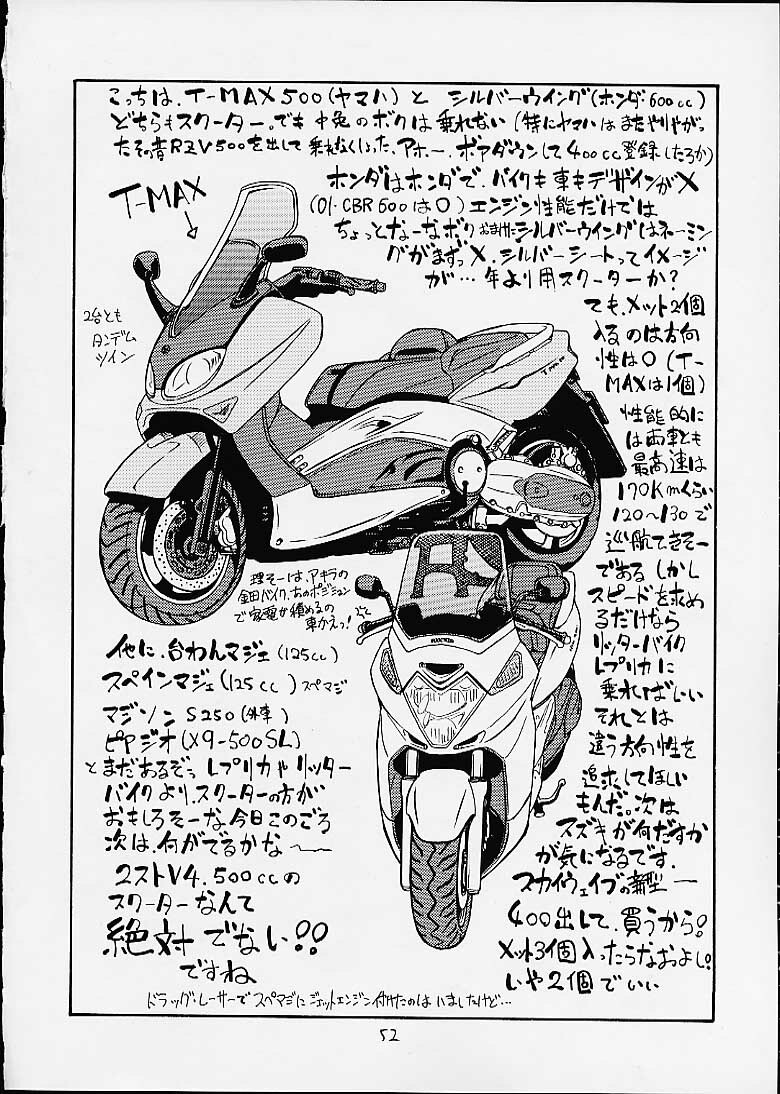 こっちは、T-MAX500(ヤマハ)と シルバーウイング(ホンダ・600cc)
どちらもスクーター。でも中免のボクは乗れない(特にヤマハはまたやりやがっ
たその昔RZV500を出して乗れなくしった、アホー、ボアダウンして400cc登録したろか)
ホンダはホンダで、バイクも車もデザインが×
(01・CBR600は○)エンジン性能だけでは
ちょっとなーなボク おまけにシルバーウイングはネーミン
グがまずっ×、シルバーシートってイメージ
が…年より用スクーターか?
T-MAX
2台とも
タンデム
ツイン
でも、メット2個
入るのは方向
性は○(T-
MAXは1個)
性能的に
は両車とも
最高速は
170Kmくらい
120〜130で
巡航できそー
である しかし
スピードを求め
るだけなら
リッターバイク
レプリカに
乗ればいい
それとは
違う方向性を
追求してほしい
もんだ。次は
スズキが何だすか
が気になるです、
スカイウェイブの新型ー
400出して、買うから!
メット3個入ったらなおよし!
いや2個でいい
理そーは、アキラの
金田バイク、あのポジション
で家電が積めるの
車かえっ!
他に、台わんマジェ(125cc)
スペインマジェ(125cc)スペマジ
マジソンS250(外車)
ピアジオ(X9-500SL)
とまだあるぞっ レプリカやリッター
バイクより、スクーターの方が
おもしろそーな、今日このごろ
次は、何がでるかな〜
2ストV4、500ccの
スクーターなんて
絶対でない!!
ですね
ドラッグ・レーサーでスペマジにジェットエンジン付けたのはいましたけど…
52